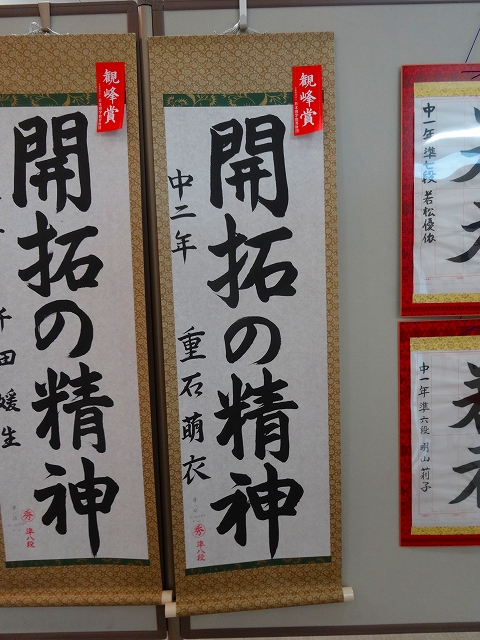 観峰賞
開拓の精神
千田媛生
秀
準八段
観峰賞
開拓の精神
中二年
重石萌衣
秀
準八段
中一年 準七段 若松優依
中一年 準六段 明山莉子